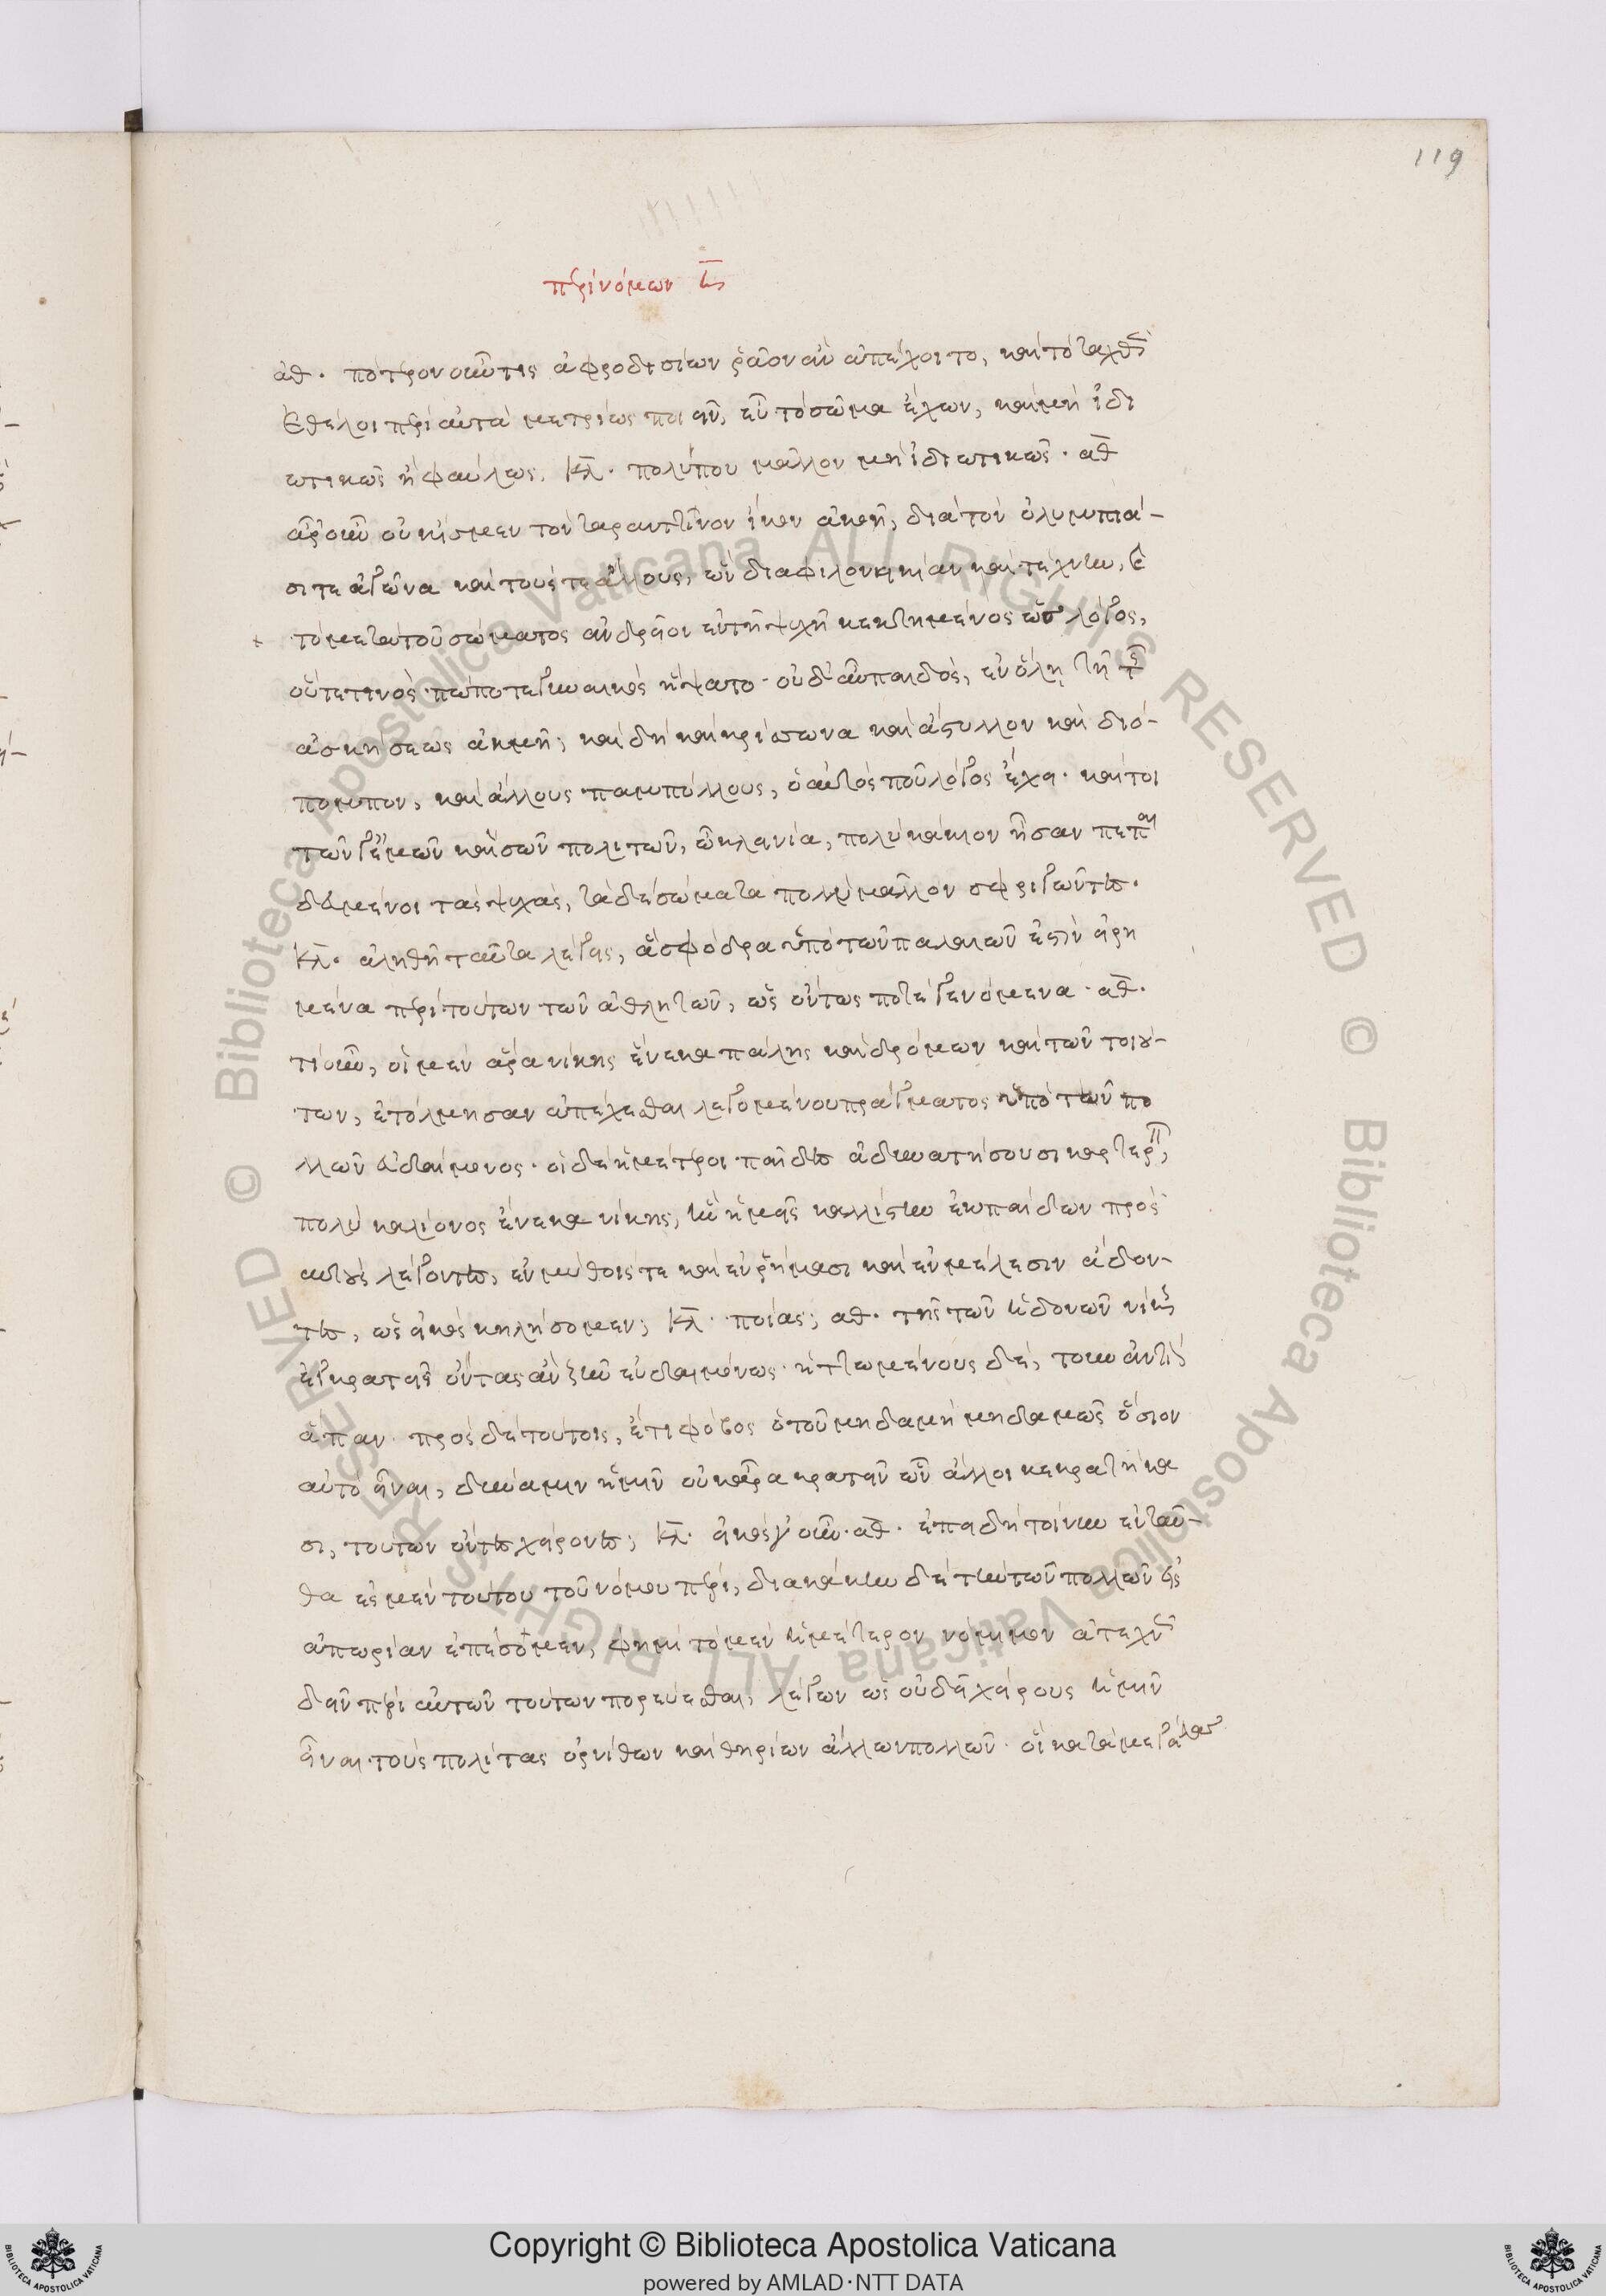 119
περὶ νόμων
ἀθ. πότερον οὖν τις ἀφροδισίων ῥᾷον ἂν ἀπέχοιτο, καὶ τὸ ταχθὲν
ἐθέλοι περὶ αὐτὰ μετρίως ποιεῖν, εὖ τὸ σῶμα ἔχων, καὶ μὴ ἰδι
ωτικῶς ἢ φαύλως. κλ. πολύ που μᾶλλον μὴ ἰδιωτικῶς. αθ
ἆρ' οὖν οὐκ ἴσμεν τὸν ταραντῖνον ἴκκον ἀκοῇ, διὰ τὸν ὀλυμπία-
σί τε ἀγῶνα καὶ τούς τε ἄλλους, ὧν διὰ φιλονεικίαν καὶ τέχνην, καὶ
τὸ μετὰ τοῦ σώματος ἀνδρεῖον ἐν τῇ ψυχῇ κεκτημένος ὡς λόγος,
οὔτε τινὸς πώποτε γυναικὸς ἥψατο. οὐδ' αὖ παιδὸς, ἐν ὅλῃ τῇ τῆς
ἀσκήσεως ἀκμῇ; καὶ δὴ καὶ κρίσωνα καὶ ἄστυλλον καὶ διό-
πομπον, καὶ ἄλλους παμπόλλους, ὁ αὐτός που λόγος ἔχει. καί τοι
τῶν γ' ἐμῶν καὶ σῶν πολιτῶν, ὦ κλεινία, πολὺ κάκιον ἦσαν πεπαι
δευμένοι τὰς ψυχὰς, τὰ δὲ σώματα πολὺ μᾶλλον σφριγῶντες.
κλ. ἀληθῆ ταῦτα λέγεις, ἃ σφόδρα ὑπὸ τῶν παλαιῶν ἐστὶν εἰρη
μένα περὶ τούτων τῶν ἀθλητῶν, ὡς ὄντως ποτὲ γενόμενα. αθ.
τί οὖν, οἱ μὲν ἄρα νίκης ἕνεκα πάλης καὶ δρόμων καὶ τῶν τοιού-
των, ἐτόλμησαν ἀπέχεσθαι λεγομένου πράγματος ὑπὸ τῶν πο
λλῶν εὐδαίμονος. οἱ δὲ ἡμέτεροι παῖδες ἀδυνατήσουσι καρτερεῖν,
πολὺ καλίονος ἕνεκα νίκης, ἣν ἡμεῖς καλλίστην ἐκ παίδων πρὸς
αὐτοὺς λέγοντες, ἐν μύθοις τε καὶ ἐν ῥήμασι καὶ ἐν μέλεσιν ἄδον-
τες, ὡς εἰκὸς κηλήσομεν; κλ. ποίας; αθ. τῆς τῶν ἡδονῶν νίκης
ἐγκρατεῖς ὄντας ἂν ζῆν εὐδαιμόνως. ἡττωμένους δὲ, τοὐναντίον
ἅπαν. πρὸς δὲ τούτοις, ἔτι φόβος ὁ τοῦ μηδαμῇ μηδαμῶς ὅσιον
αὐτὸ εἶναι, δύναμιν ἡμῖν οὐκ ἄρα κρατεῖν ὧν ἄλλοι κεκρατήκα
σι, τούτων ὄντες χείρονες; κλ. εἰκὸς γ' οὖν. αθ. ἐπειδὴ τοίνυν ἐνταῦ-
θα ἐσμὲν τούτου τοῦ νόμου πέρι, διὰ κάκην δὲ τὴν τῶν πολλῶν εἰς
ἀπωρίαν ἐπέσομεν, φημὶ τὸ μὲν ἡμέτερον νόμιμον ἀτεχνῶς
δεῖν περὶ αὐτῶν τούτων πορεύεσθαι, λέγων ὡς οὐ δεῖ χείρους ἡμῖν
εἶναι τοὺς πολίτας ὀρνίθων καὶ θηρίων ἄλλων πολλῶν. οἳ κατὰ μεγάλας
Copyright © Biblioteca Apostolica Vaticana
powered by AMLAD·NTT DATA